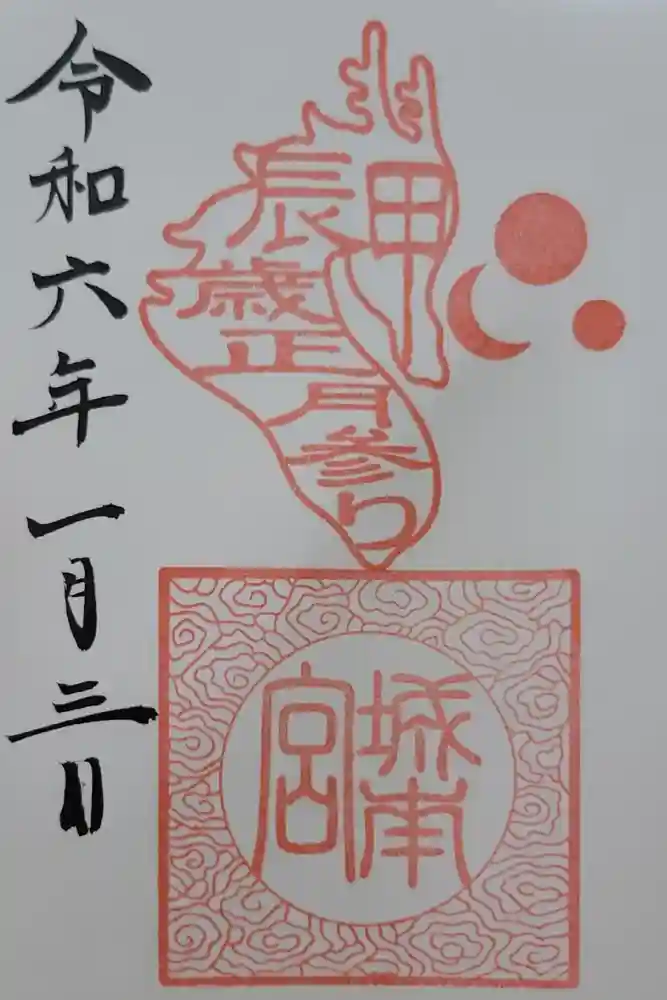 甲
辰歳正月参り
城南
宮
令和六年一月三日